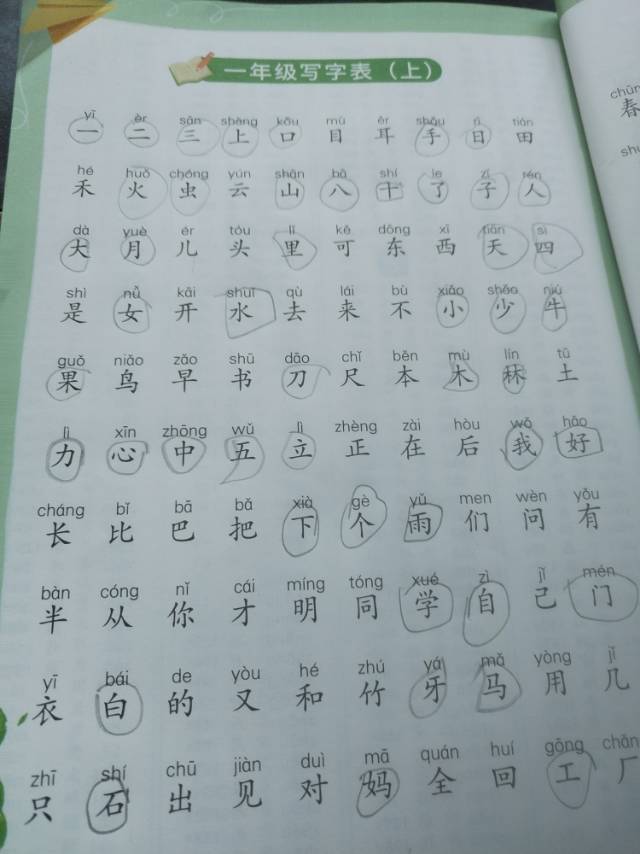 一年级写字表（上）
yī èr sān shàng kǒu mù ěr shǒu rì tián
一 二 三 上 口 目 耳 手 日 田
hé huǒ chóng yún shān bā shí le zǐ rén
禾 火 虫 云 山 八 十 了 子 人
dà yuè ér tóu lǐ kě dōng xī tiān sì
大 月 儿 头 里 可 东 西 天 四
shì nǚ kāi shuǐ qù lái bù xiǎo shǎo niú
是 女 开 水 去 来 不 小 少 牛
guǒ niǎo zǎo shū dāo chǐ běn mù lín tǔ
果 鸟 早 书 刀 尺 本 木 林 土
lì xīn zhōng wǔ lì zhèng zài hòu wǒ hǎo
力 心 中 五 立 正 在 后 我 好
cháng bǐ bā bǎ xià gè yǔ men wèn yǒu
长 比 巴 把 下 个 雨 们 问 有
bàn cóng nǐ cái míng tóng xué zì jǐ mén
半 从 你 才 明 同 学 自 己 门
yī bái de yòu hé zhú yá mǎ yòng jǐ
衣 白 的 又 和 竹 牙 马 用 几
zhī shí chū jiàn duì mā quán huí gōng chǎng
只 石 出 见 对 妈 全 回 工 厂
chūn
春